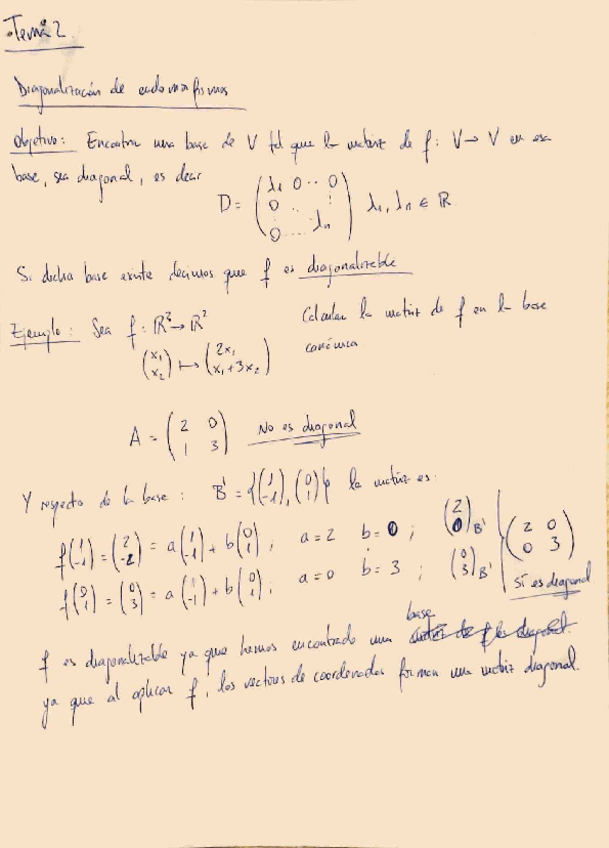 Tema 2.
Diagonalización de endomorfismos
Objetivo: Encontrar una base de V tal que la matriz de f: V → V en esa
base, sea diagonal, es decir
D = (λ1 0 ·· 0 / 0 ··· ⋮ / 0 ···· λn) λ1, λn ∈ ℝ
Si dicha base existe decimos que f es diagonalizable
Ejemplo: Sea f: ℝ² → ℝ² Calcular la matriz de f en la base
(x1 / x2) ↦ (2x1 / x1+3x2) canónica
A = (2 0 / 1 3) No es diagonal
Y respecto de la base: B' = {(1 / -1), (0 / 1)} la matriz es:
f(1 / -1) = (2 / -2) = a(1 / -1) + b(0 / 1); a=2 b=0; (2 / 0)B' (2 0 / 0 3)
f(0 / 1) = (0 / 3) = a(1 / -1) + b(0 / 1); a=0 b=3; (0 / 3)B' Sí es diagonal
f es diagonalizable ya que hemos encontrado una base
ya que al aplicar f, los vectores de coordenadas forman una matriz diagonal.